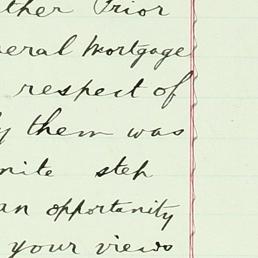 ther Prior
eral Mortgage
respect of
them was
nite step
an opportunity
your views